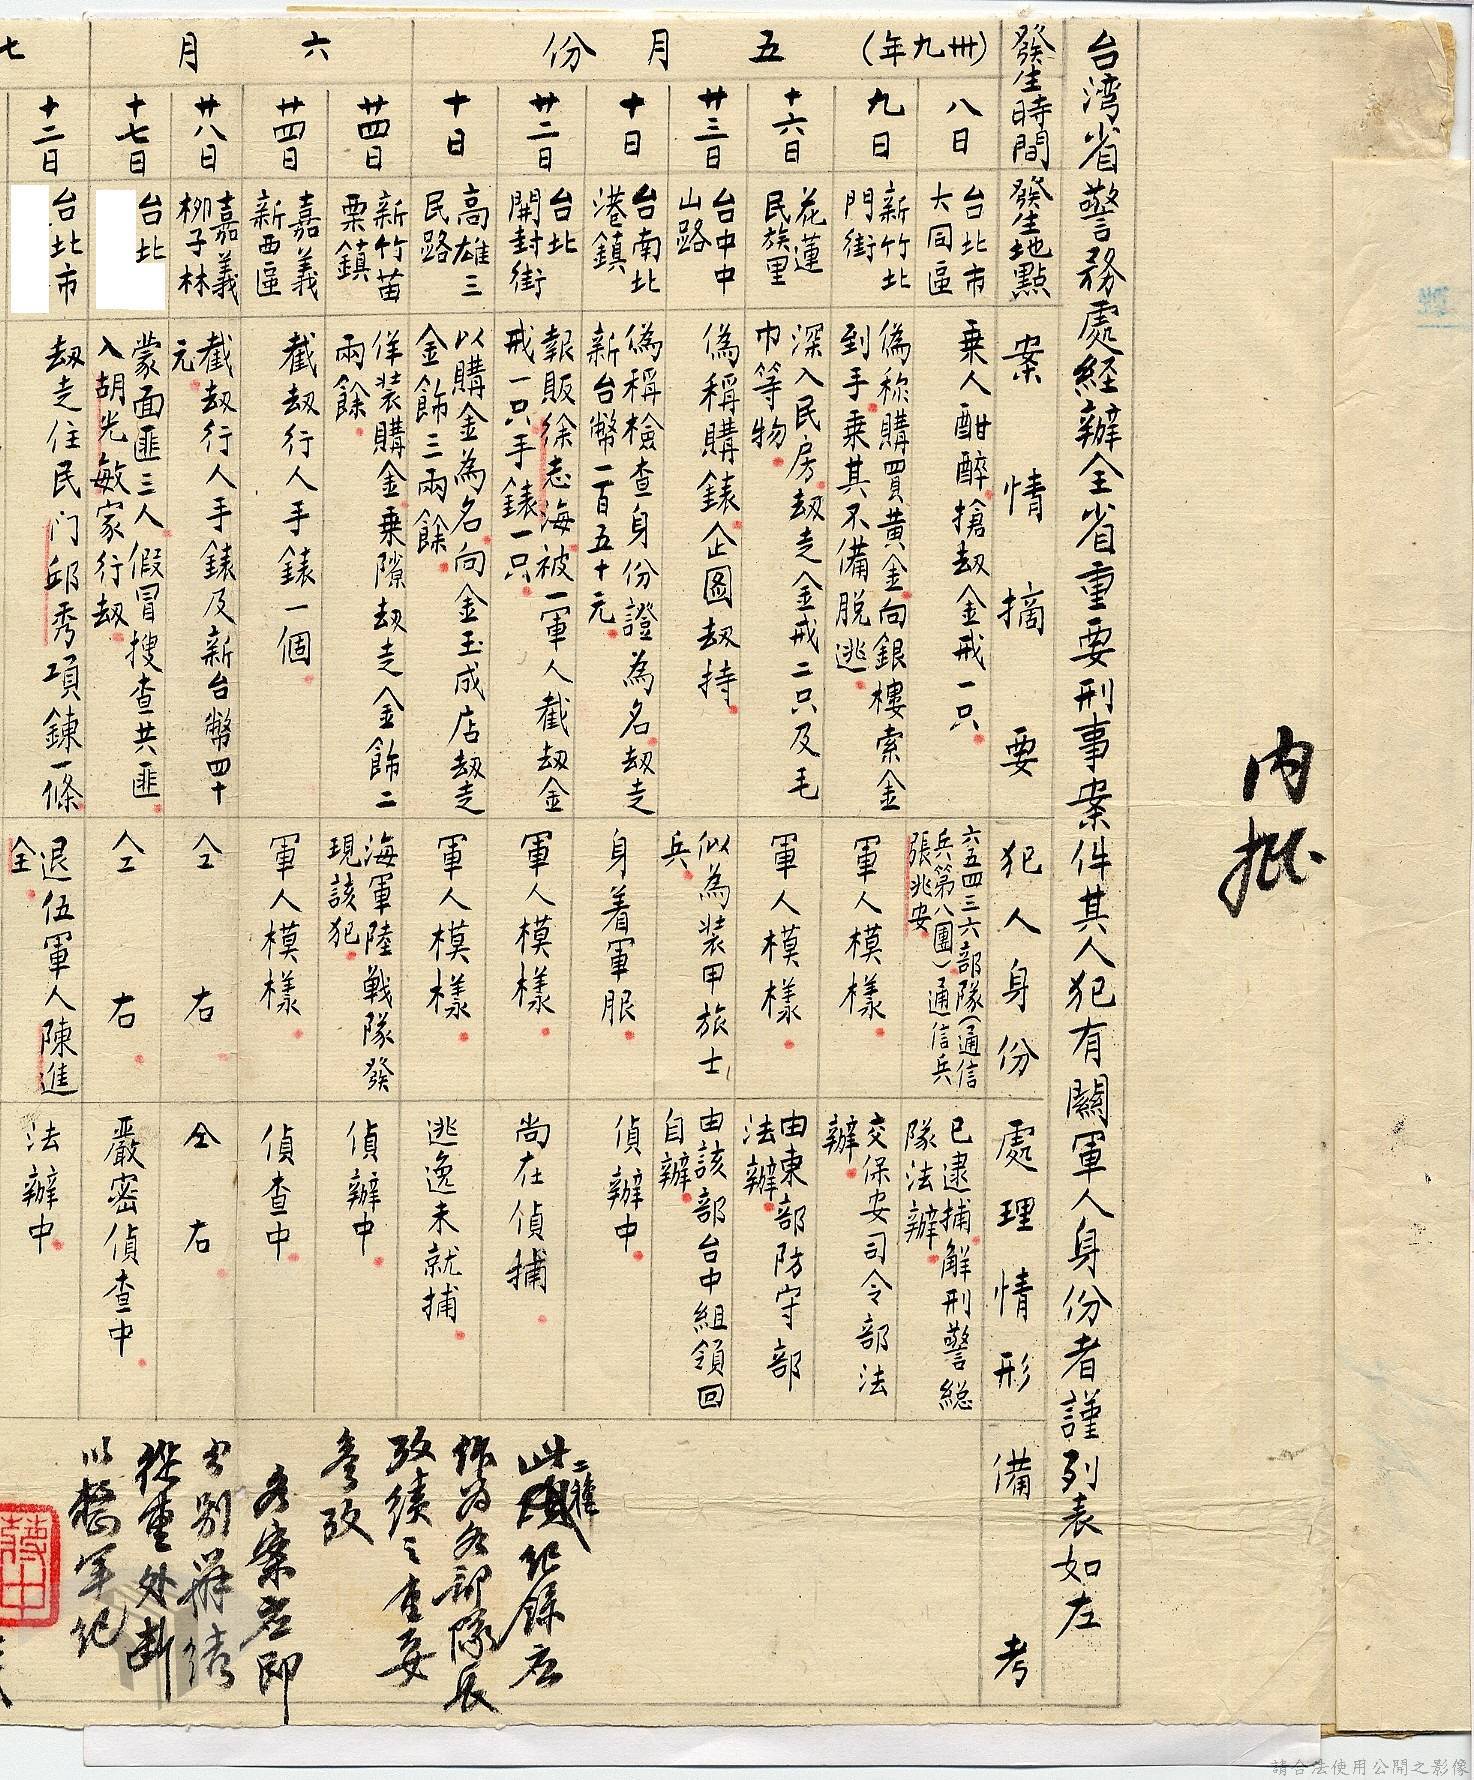 內批
台湾省警務處経辦全省重要刑事案件其人犯有關軍人身份者謹列表如左
發生時間
發生地點
案情摘要
犯人身份
處理情形
備考
(卅九年)五月份
八日
台北市
大同區
乘人酣醉搶刼金戒一只
六五四三六部隊(通信
兵第八團)通信兵
張兆安
已逮捕解刑警総
隊法辦
九日
新竹北
門街
偽称購買黃金向銀樓索金
到手乘其不備脫逃
軍人模樣
交保安司令部法
辦
十六日
花蓮
民族里
深入民房刼走金戒二只及毛
巾等物
軍人模樣
由東部防守部
法辦
廿三日
台中中
山路
偽稱購錶企图刼持
似為裝甲旅士
兵
由該部台中組領回
自辦
十日
台南北
港鎮
偽稱檢查身份證為名刼走
新台幣一百五十元
身着軍服
偵辦中
廿二日
台北
開封街
報販徐志海被一軍人截刼金
戒一只手錶一只
軍人模樣
尚在偵捕
十日
高雄三
民路
以購金為名向金玉成店刼走
金飾三兩餘
軍人模樣
逃逸未就捕
六月
廿四日
新竹苗
栗鎮
佯装購金乘隙刼走金飾二
兩餘
海軍陸戰隊發
現該犯
偵辦中
廿四日
嘉義
新西區
截刼行人手錶一個
軍人模樣
偵查中
廿八日
嘉義
柳子林
截刼行人手錶及新台幣四十
元
仝右
仝右
十七日
台北
蒙面匪三人假冒搜查共匪
入胡光敏家行刼
仝右
嚴密偵查中
七
十二日
台北市
刼走住民门邱秀項鍊一條
退伍軍人陳進
全
法辦中
此二種紀錄应
作为各部隊長
攷績之重要
參攷
各案应即
分别辦結
從重处断
以整軍紀
請合法使用公開之影像